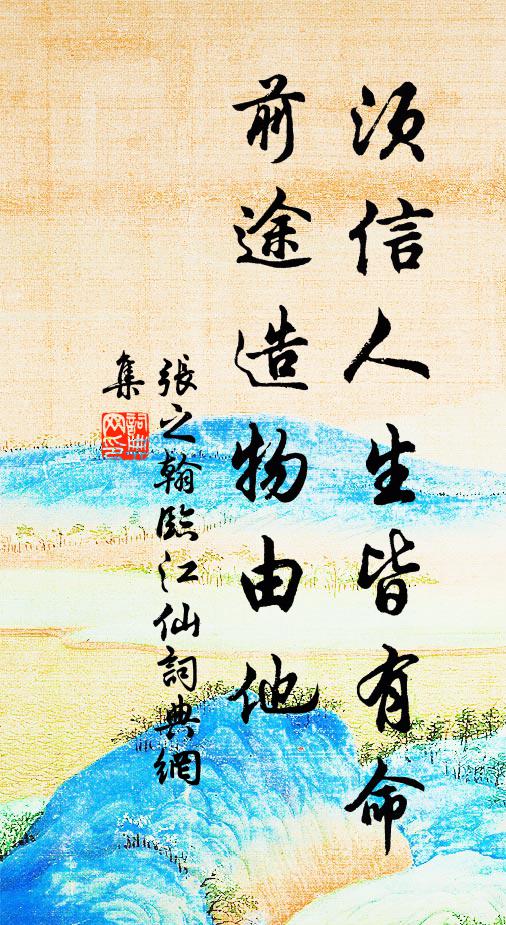 須信人生皆有命
前途造物由他
張之翰臨江仙詞典網
集
詞典網印